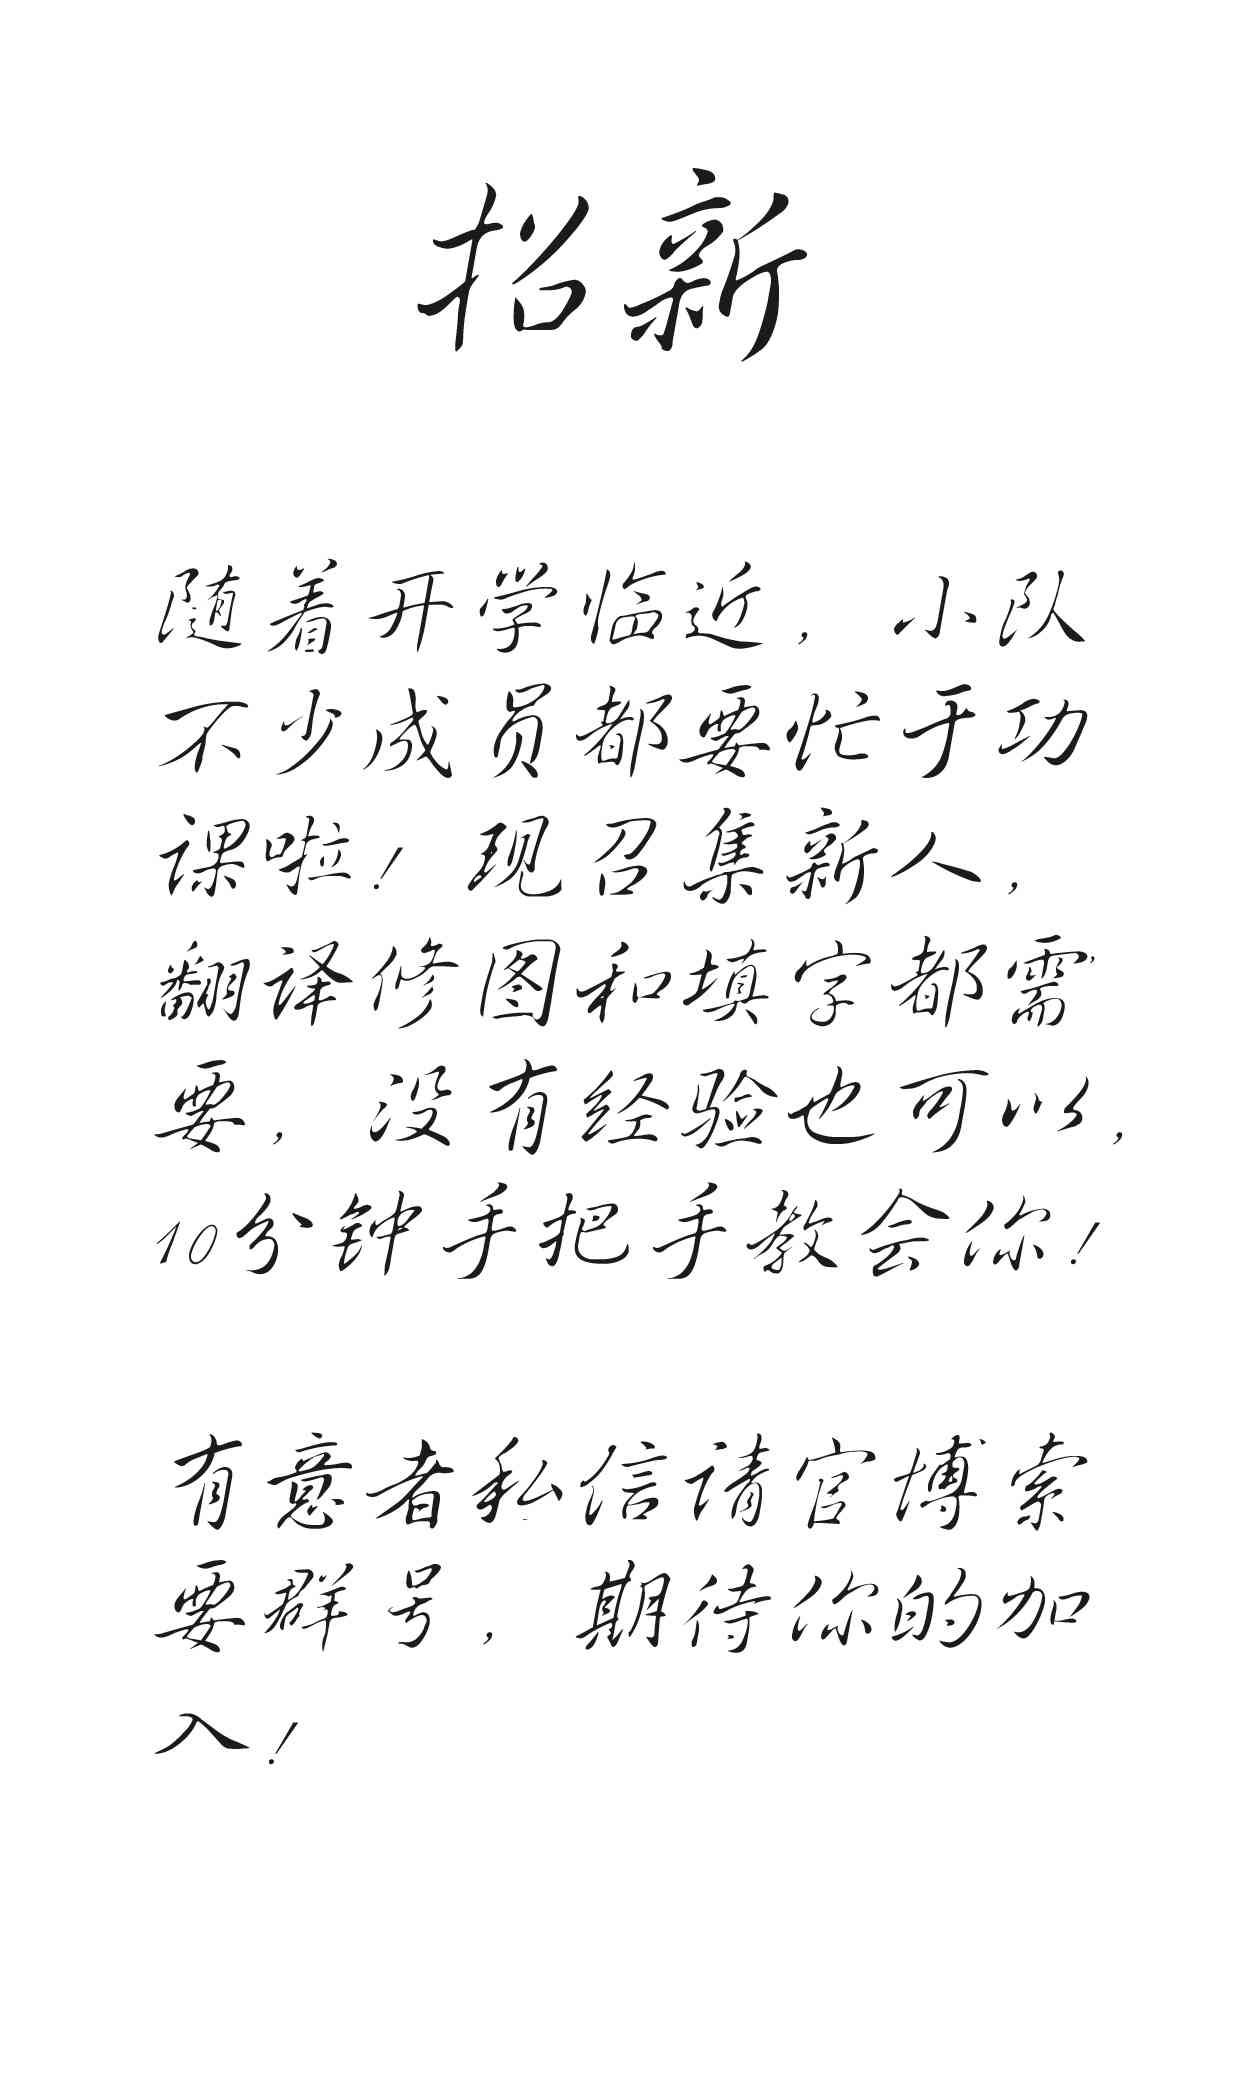 招新
随着开学临近，小队
不少成员都要忙于功
课啦！现召集新人，
翻译修图和填字都需
要，没有经验也可以，
10分钟手把手教会你！
有意者私信请官博索
要群号，期待你的加
入！